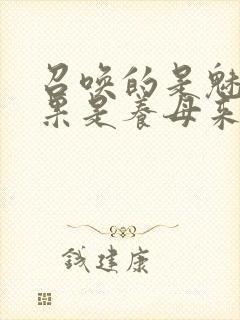 召唤的是魅
果是养母来
钱建康